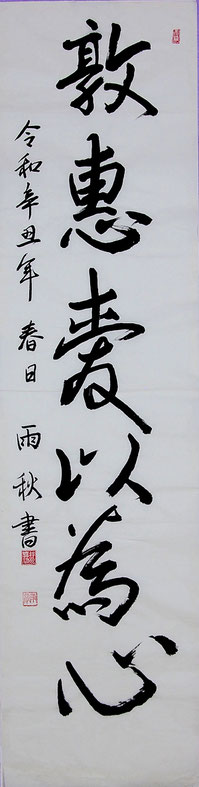 敦惠愛以為心
令和辛丑年 春日 雨秋書